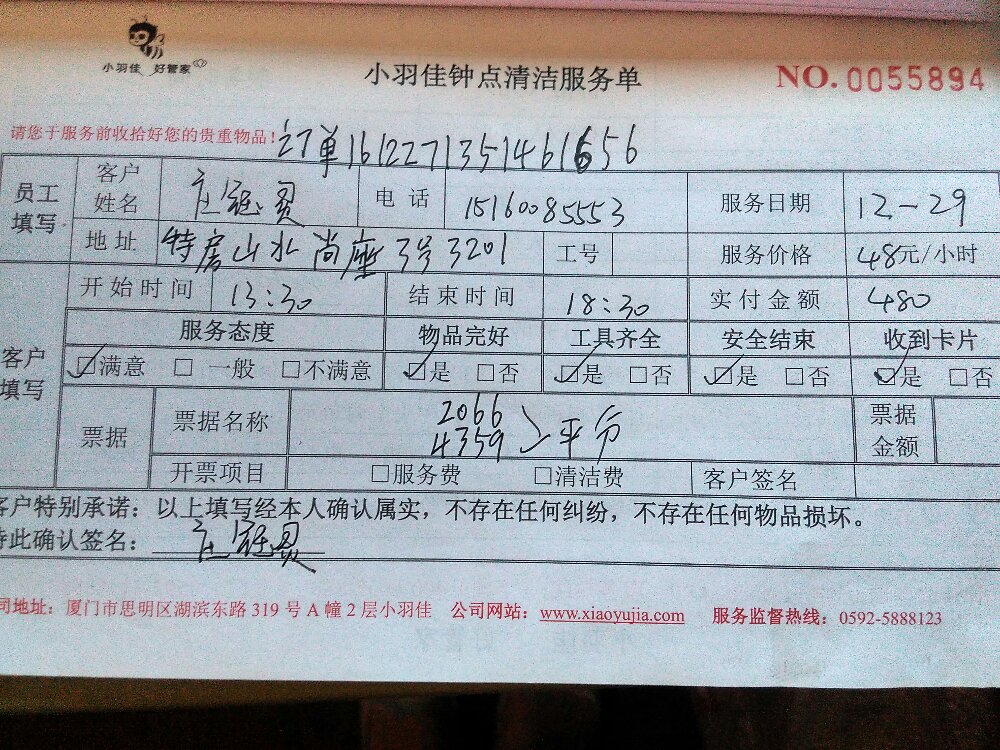 小羽佳 好管家
小羽佳钟点清洁服务单
NO. 0055894
请您于服务前收拾好您的贵重物品!
订单1612271351461656
员工填写
客户姓名 庄冠
电话 15160085553
服务日期 12-29
地址 特房山水尚座3号3201
工号
服务价格 48元/小时
客户填写
开始时间 13:30
结束时间 18:30
实付金额 480
服务态度 物品完好 工具齐全 安全结束 收到卡片
☑满意 □ 一般 □不满意 ☑是 □否 ☑是 □否 ☑是 □否 ☑是 □否
票据
票据名称
2066
4359 平分
票据金额
开票项目 □服务费 □清洁费 客户签名
客户特别承诺：以上填写经本人确认属实，不存在任何纠纷，不存在任何物品损坏。
特此确认签名： 庄冠
司地址：厦门市思明区湖滨东路 319 号 A 幢 2 层小羽佳 公司网站：www.xiaoyujia.com 服务监督热线：0592-5888123